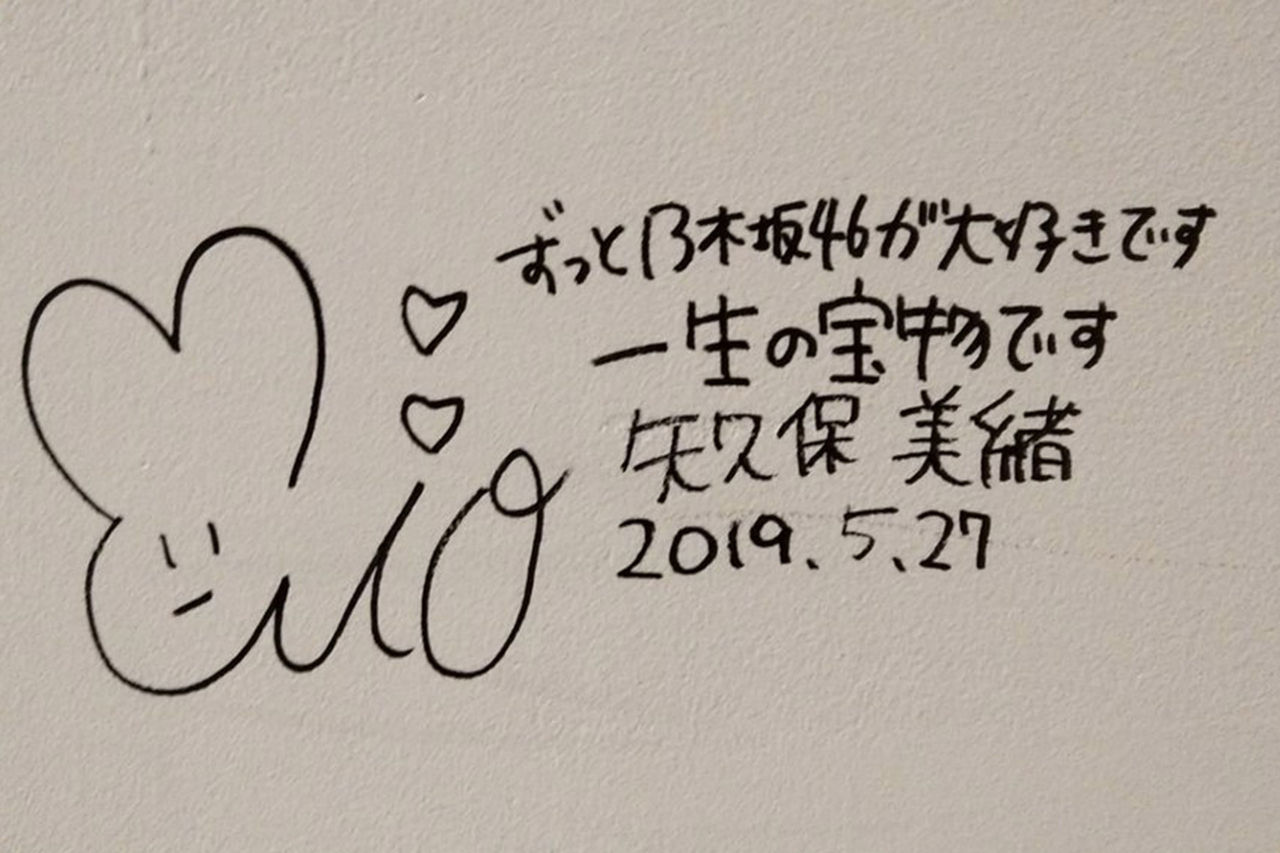 Mio
ずっと乃木坂46が大好きです
一生の宝物です
矢久保 美緒
2019.5.27